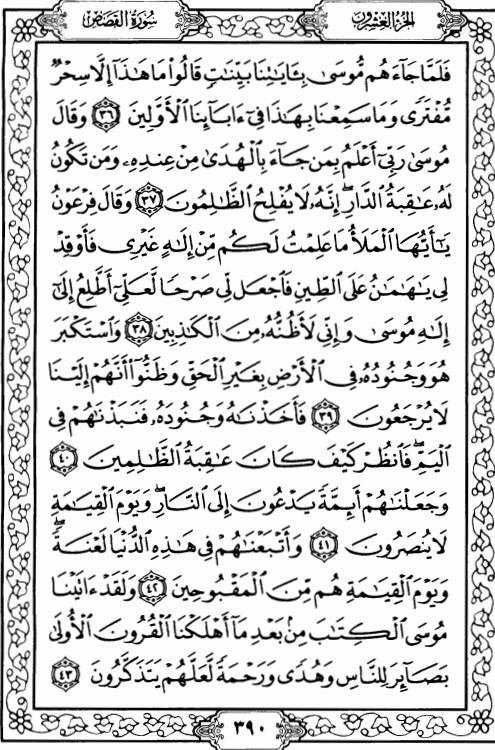 الجزء العشرون
سورة القصص
فَلَمَّا جَآءَهُم مُّوسَىٰ بِـَٔايَـٰتِنَا بَيِّنَـٰتٍ قَالُوا۟ مَا هَـٰذَآ إِلَّا سِحْرٌ
مُّفْتَرًى وَمَا سَمِعْنَا بِهَـٰذَا فِىٓ ءَابَآئِنَا ٱلْأَوَّلِينَ ٣٦ وَقَالَ
مُوسَىٰ رَبِّىٓ أَعْلَمُ بِمَن جَآءَ بِٱلْهُدَىٰ مِنْ عِندِهِۦ وَمَن تَكُونُ
لَهُۥ عَـٰقِبَةُ ٱلدَّارِ ۖ إِنَّهُۥ لَا يُفْلِحُ ٱلظَّـٰلِمُونَ ٣٧ وَقَالَ فِرْعَوْنُ
يَـٰٓأَيُّهَا ٱلْمَلَأُ مَا عَلِمْتُ لَكُم مِّنْ إِلَـٰهٍ غَيْرِى فَأَوْقِدْ
لِى يَـٰهَـٰمَـٰنُ عَلَى ٱلطِّينِ فَٱجْعَل لِّى صَرْحًا لَّعَلِّىٓ أَطَّلِعُ إِلَىٰٓ
إِلَـٰهِ مُوسَىٰ وَإِنِّى لَأَظُنُّهُۥ مِنَ ٱلْكَـٰذِبِينَ ٣٨ وَٱسْتَكْبَرَ
هُوَ وَجُنُودُهُۥ فِى ٱلْأَرْضِ بِغَيْرِ ٱلْحَقِّ وَظَنُّوٓا۟ أَنَّهُمْ إِلَيْنَا
لَا يُرْجَعُونَ ٣٩ فَأَخَذْنَـٰهُ وَجُنُودَهُۥ فَنَبَذْنَـٰهُمْ فِى
ٱلْيَمِّ ۖ فَٱنظُرْ كَيْفَ كَانَ عَـٰقِبَةُ ٱلظَّـٰلِمِينَ ٤٠
وَجَعَلْنَـٰهُمْ أَئِمَّةً يَدْعُونَ إِلَى ٱلنَّارِ ۖ وَيَوْمَ ٱلْقِيَـٰمَةِ
لَا يُنصَرُونَ ٤١ وَأَتْبَعْنَـٰهُمْ فِى هَـٰذِهِ ٱلدُّنْيَا لَعْنَةً ۖ
وَيَوْمَ ٱلْقِيَـٰمَةِ هُم مِّنَ ٱلْمَقْبُوحِينَ ٤٢ وَلَقَدْ ءَاتَيْنَا
مُوسَى ٱلْكِتَـٰبَ مِنۢ بَعْدِ مَآ أَهْلَكْنَا ٱلْقُرُونَ ٱلْأُولَىٰ
بَصَآئِرَ لِلنَّاسِ وَهُدًى وَرَحْمَةً لَّعَلَّهُمْ يَتَذَكَّرُونَ ٤٣
٣٩٠